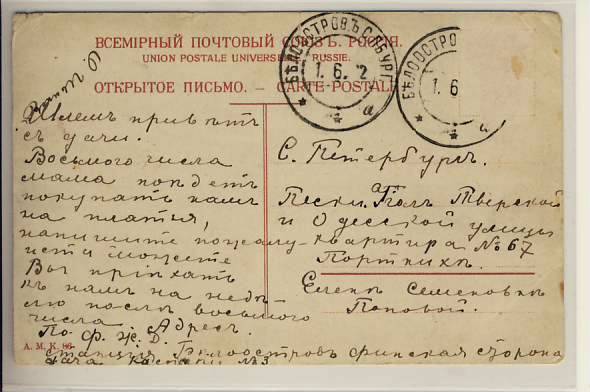 ВСЕМІРНЫЙ ПОЧТОВЫЙ СОЮЗЪ. РОССІЯ.
UNION POSTALE UNIVERSELLE. RUSSIE.
ОТКРЫТОЕ ПИСЬМО. — CARTE-POSTALE
БѢЛООСТРОВЪ С.П.БУРГ.
1. 6. 12
а
БѢЛООСТРО
1. 6
а
Шлемъ привѣтъ
съ дачи.
Восьмого числа
мама поѣдетъ
покупать намъ
на платья,
напишите пожалу-
иста можете
Вы пріѣхать
къ намъ на недѣ-
лю послѣ восьмого
числа
Адресъ.
По. Ф. Ж. Д.
станція Бѣлоостровъ финская сторона
дача № 3
С. Петербургъ.
Пески. Уголъ Тверской
и Одесской улицы
квартира № 67
Портнихѣ.
Еленѣ Семеновнѣ
Поповой.
А. М. К. 86